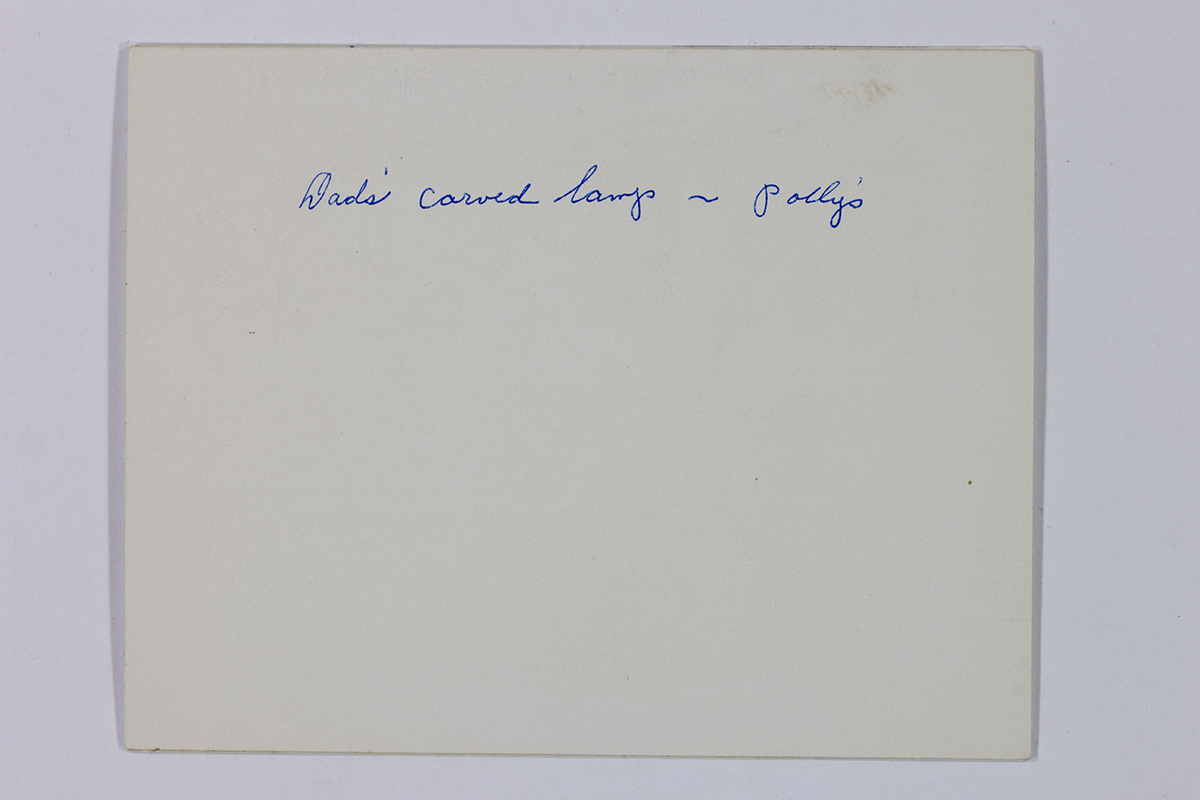 Dad's carved lamp ~ Polly's